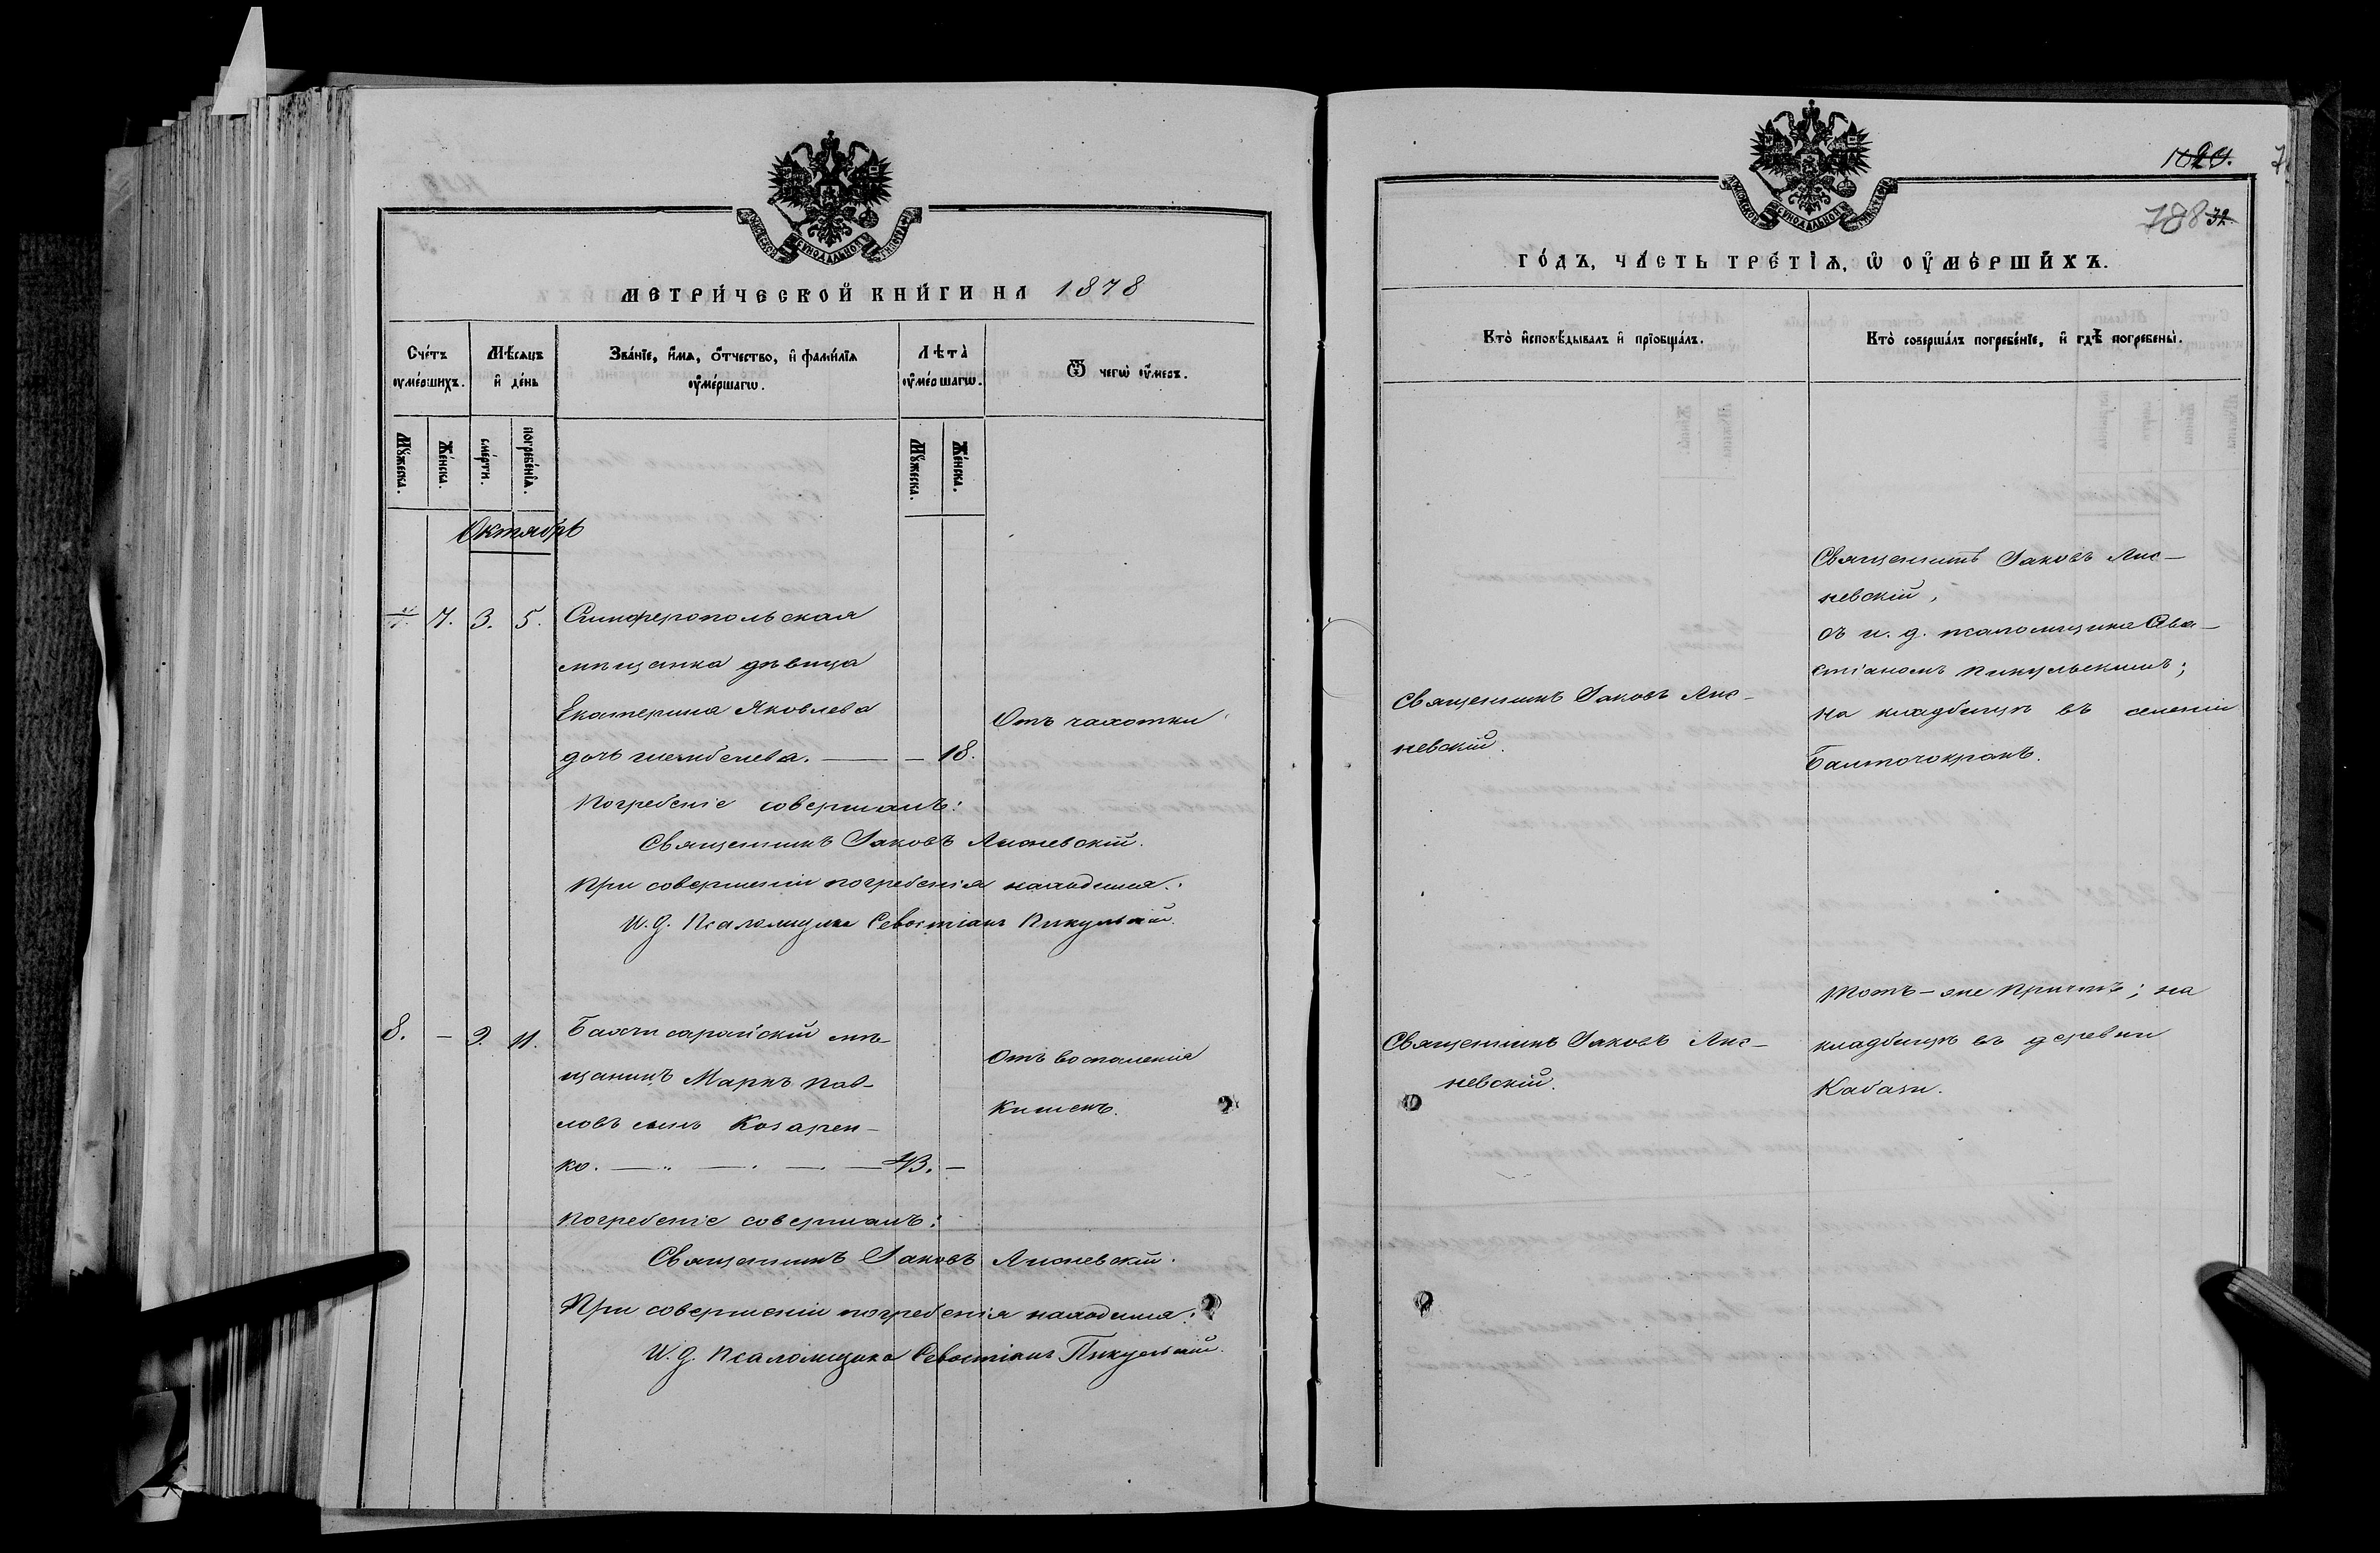 МЕТРИЧЕСКОЙ КНИГИ НА 1878
Счетъ умершихъ.
Мѣсяцъ и день
Званіе, имя, отчество, и фамилія умершагω.
Лѣта умершагω.
Ѿ чегω умеръ.
Мужеска.
Женска.
смерти.
погребенія.
Мужеска.
Женска.
Октябрь
7. 3. 5. Симферопольская
мѣщанка дѣвица
Екатерина Яковлева
дочь — 18.
Отъ чахотки
Погребеніе совершалъ:
Священникъ Іаковъ Лисневскій.
При совершеніи погребенія находился:
И. д. Псаломщика Севостіанъ Пикульскій.
8. — 9. 11. Бахчисарайскій мѣ-
щанинъ Маркъ Пав-
ловъ сынъ Козарен-
ко. — 43. —
Отъ воспаленія
кишекъ.
Погребеніе совершалъ:
Священникъ Іаковъ Лисневскій.
При совершеніи погребенія находился:
И. д. Псаломщика Севостіанъ Пикульскій.
1020.
788 32.
ГОДЪ, ЧАСТЬ ТРЕТІЯ, Ѡ ОУМЕРШИХЪ.
Кто исповѣдывалъ и пріобщалъ.
Кто совершалъ погребеніе, и гдѣ погребены.
Священникъ Іаковъ Лис-
невскій.
Священникъ Іаковъ Лис-
невскій,
съ и. д. псаломщика Сева-
стіаномъ Пикульскимъ;
на кладбищѣ въ селеніи
Балточокракъ.
Священникъ Іаковъ Лис-
невскій.
Тотъ-же причтъ; на
кладбищѣ въ деревни
Кабази.